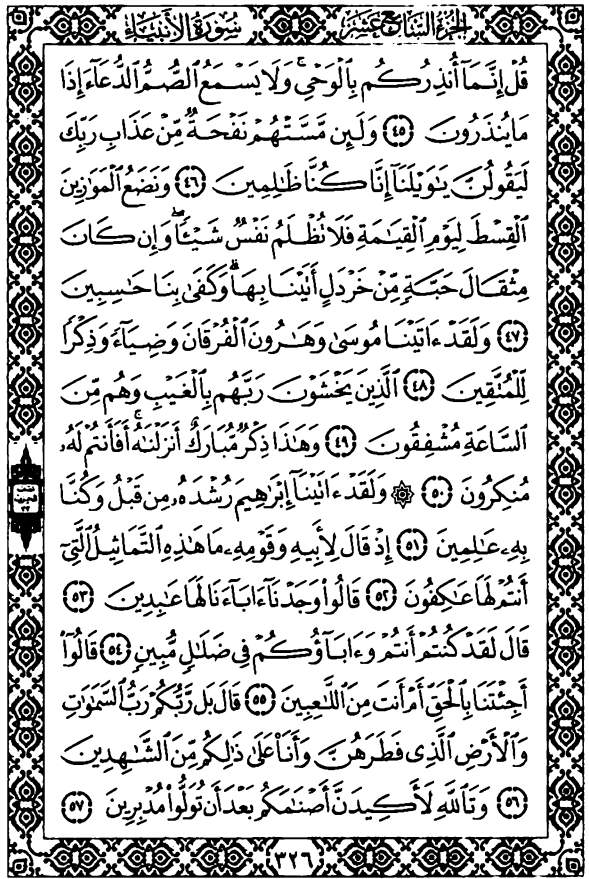 الجزء السابع عشر سورة الأنبياء
قُلْ إِنَّمَآ أُنذِرُكُم بِٱلْوَحْىِ ۚ وَلَا يَسْمَعُ ٱلصُّمُّ ٱلدُّعَآءَ إِذَا
مَا يُنذَرُونَ ٤٥ وَلَئِن مَّسَّتْهُمْ نَفْحَةٌ مِّنْ عَذَابِ رَبِّكَ
لَيَقُولُنَّ يَـٰوَيْلَنَآ إِنَّا كُنَّا ظَـٰلِمِينَ ٤٦ وَنَضَعُ ٱلْمَوَٰزِينَ
ٱلْقِسْطَ لِيَوْمِ ٱلْقِيَـٰمَةِ فَلَا تُظْلَمُ نَفْسٌ شَيْـًٔا ۖ وَإِن كَانَ
مِثْقَالَ حَبَّةٍ مِّنْ خَرْدَلٍ أَتَيْنَا بِهَا ۗ وَكَفَىٰ بِنَا حَـٰسِبِينَ
٤٧ وَلَقَدْ ءَاتَيْنَا مُوسَىٰ وَهَـٰرُونَ ٱلْفُرْقَانَ وَضِيَآءً وَذِكْرًا
لِّلْمُتَّقِينَ ٤٨ ٱلَّذِينَ يَخْشَوْنَ رَبَّهُم بِٱلْغَيْبِ وَهُم مِّنَ
ٱلسَّاعَةِ مُشْفِقُونَ ٤٩ وَهَـٰذَا ذِكْرٌ مُّبَارَكٌ أَنزَلْنَـٰهُ ۚ أَفَأَنتُمْ لَهُۥ
مُنكِرُونَ ٥٠ ۞ وَلَقَدْ ءَاتَيْنَآ إِبْرَٰهِيمَ رُشْدَهُۥ مِن قَبْلُ وَكُنَّا
بِهِۦ عَـٰلِمِينَ ٥١ إِذْ قَالَ لِأَبِيهِ وَقَوْمِهِۦ مَا هَـٰذِهِ ٱلتَّمَاثِيلُ ٱلَّتِىٓ
أَنتُمْ لَهَا عَـٰكِفُونَ ٥٢ قَالُوا۟ وَجَدْنَآ ءَابَآءَنَا لَهَا عَـٰبِدِينَ ٥٣
قَالَ لَقَدْ كُنتُمْ أَنتُمْ وَءَابَآؤُكُمْ فِى ضَلَـٰلٍ مُّبِينٍ ٥٤ قَالُوٓا۟
أَجِئْتَنَا بِٱلْحَقِّ أَمْ أَنتَ مِنَ ٱللَّـٰعِبِينَ ٥٥ قَالَ بَل رَّبُّكُمْ رَبُّ ٱلسَّمَـٰوَٰتِ
وَٱلْأَرْضِ ٱلَّذِى فَطَرَهُنَّ وَأَنَا۠ عَلَىٰ ذَٰلِكُم مِّنَ ٱلشَّـٰهِدِينَ
٥٦ وَتَٱللَّهِ لَأَكِيدَنَّ أَصْنَـٰمَكُم بَعْدَ أَن تُوَلُّوا۟ مُدْبِرِينَ ٥٧
٣٢٦